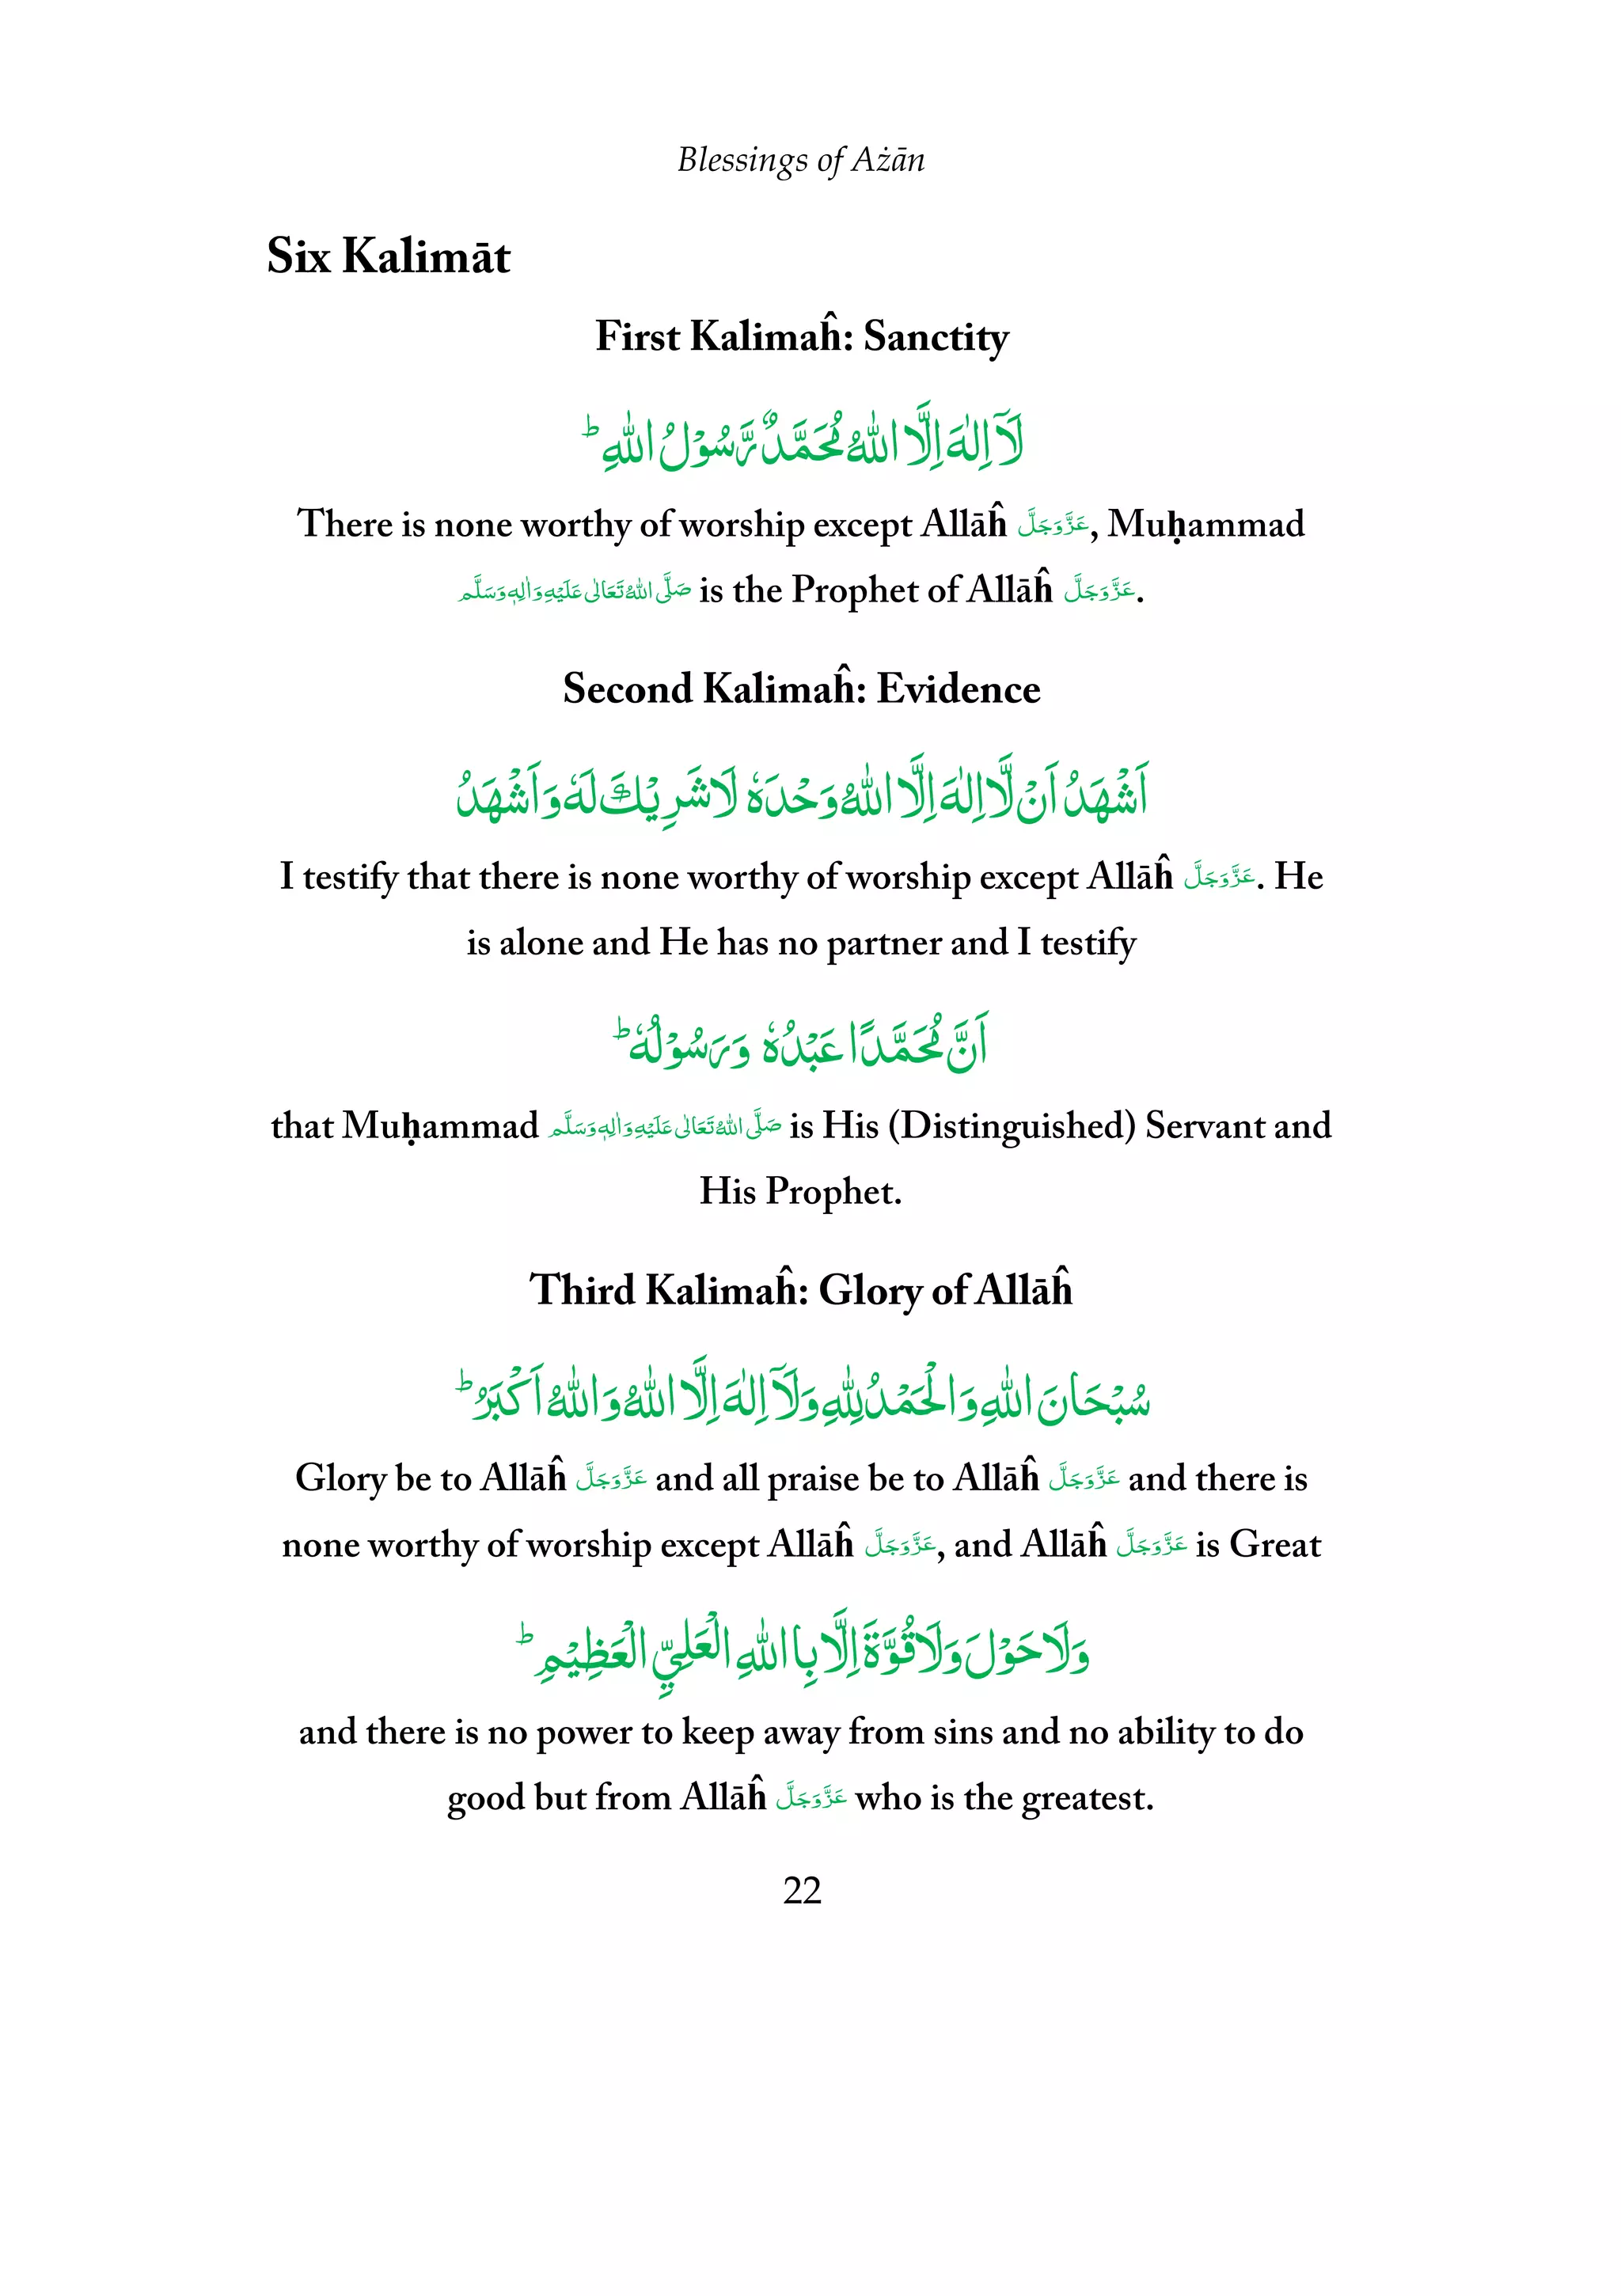 Blessings of Ażān
Six Kalimāt
First Kalimaĥ: Sanctity
لَآ اِلٰهَ اِلَّا اللهُ مُحَمَّدٌ رَّسُوْلُ اللهِ ؕ
There is none worthy of worship except Allāĥ عَزَّوَجَلَّ, Muḥammad
صَلَّى اللهُ تَعَالٰى عَلَيْهِ وَاٰلِهٖ وَسَلَّم is the Prophet of Allāĥ عَزَّوَجَلَّ.
Second Kalimaĥ: Evidence
اَشْهَدُ اَنْ لَّا اِلٰهَ اِلَّا اللهُ وَحْدَهٗ لَا شَرِيْكَ لَهٗ وَاَشْهَدُ
I testify that there is none worthy of worship except Allāĥ عَزَّوَجَلَّ. He
is alone and He has no partner and I testify
اَنَّ مُحَمَّدًا عَبْدُهٗ وَرَسُوْلُهٗ ؕ
that Muḥammad صَلَّى اللهُ تَعَالٰى عَلَيْهِ وَاٰلِهٖ وَسَلَّم is His (Distinguished) Servant and
His Prophet.
Third Kalimaĥ: Glory of Allāĥ
سُبْحَانَ اللهِ وَالْحَمْدُ لِلّٰهِ وَلَآ اِلٰهَ اِلَّا اللهُ وَاللهُ اَكْبَرُ ؕ
Glory be to Allāĥ عَزَّوَجَلَّ and all praise be to Allāĥ عَزَّوَجَلَّ and there is
none worthy of worship except Allāĥ عَزَّوَجَلَّ, and Allāĥ عَزَّوَجَلَّ is Great
وَلَا حَوْلَ وَلَا قُوَّةَ اِلَّا بِاللهِ الْعَلِيِّ الْعَظِيْمِ ؕ
and there is no power to keep away from sins and no ability to do
good but from Allāĥ عَزَّوَجَلَّ who is the greatest.
22